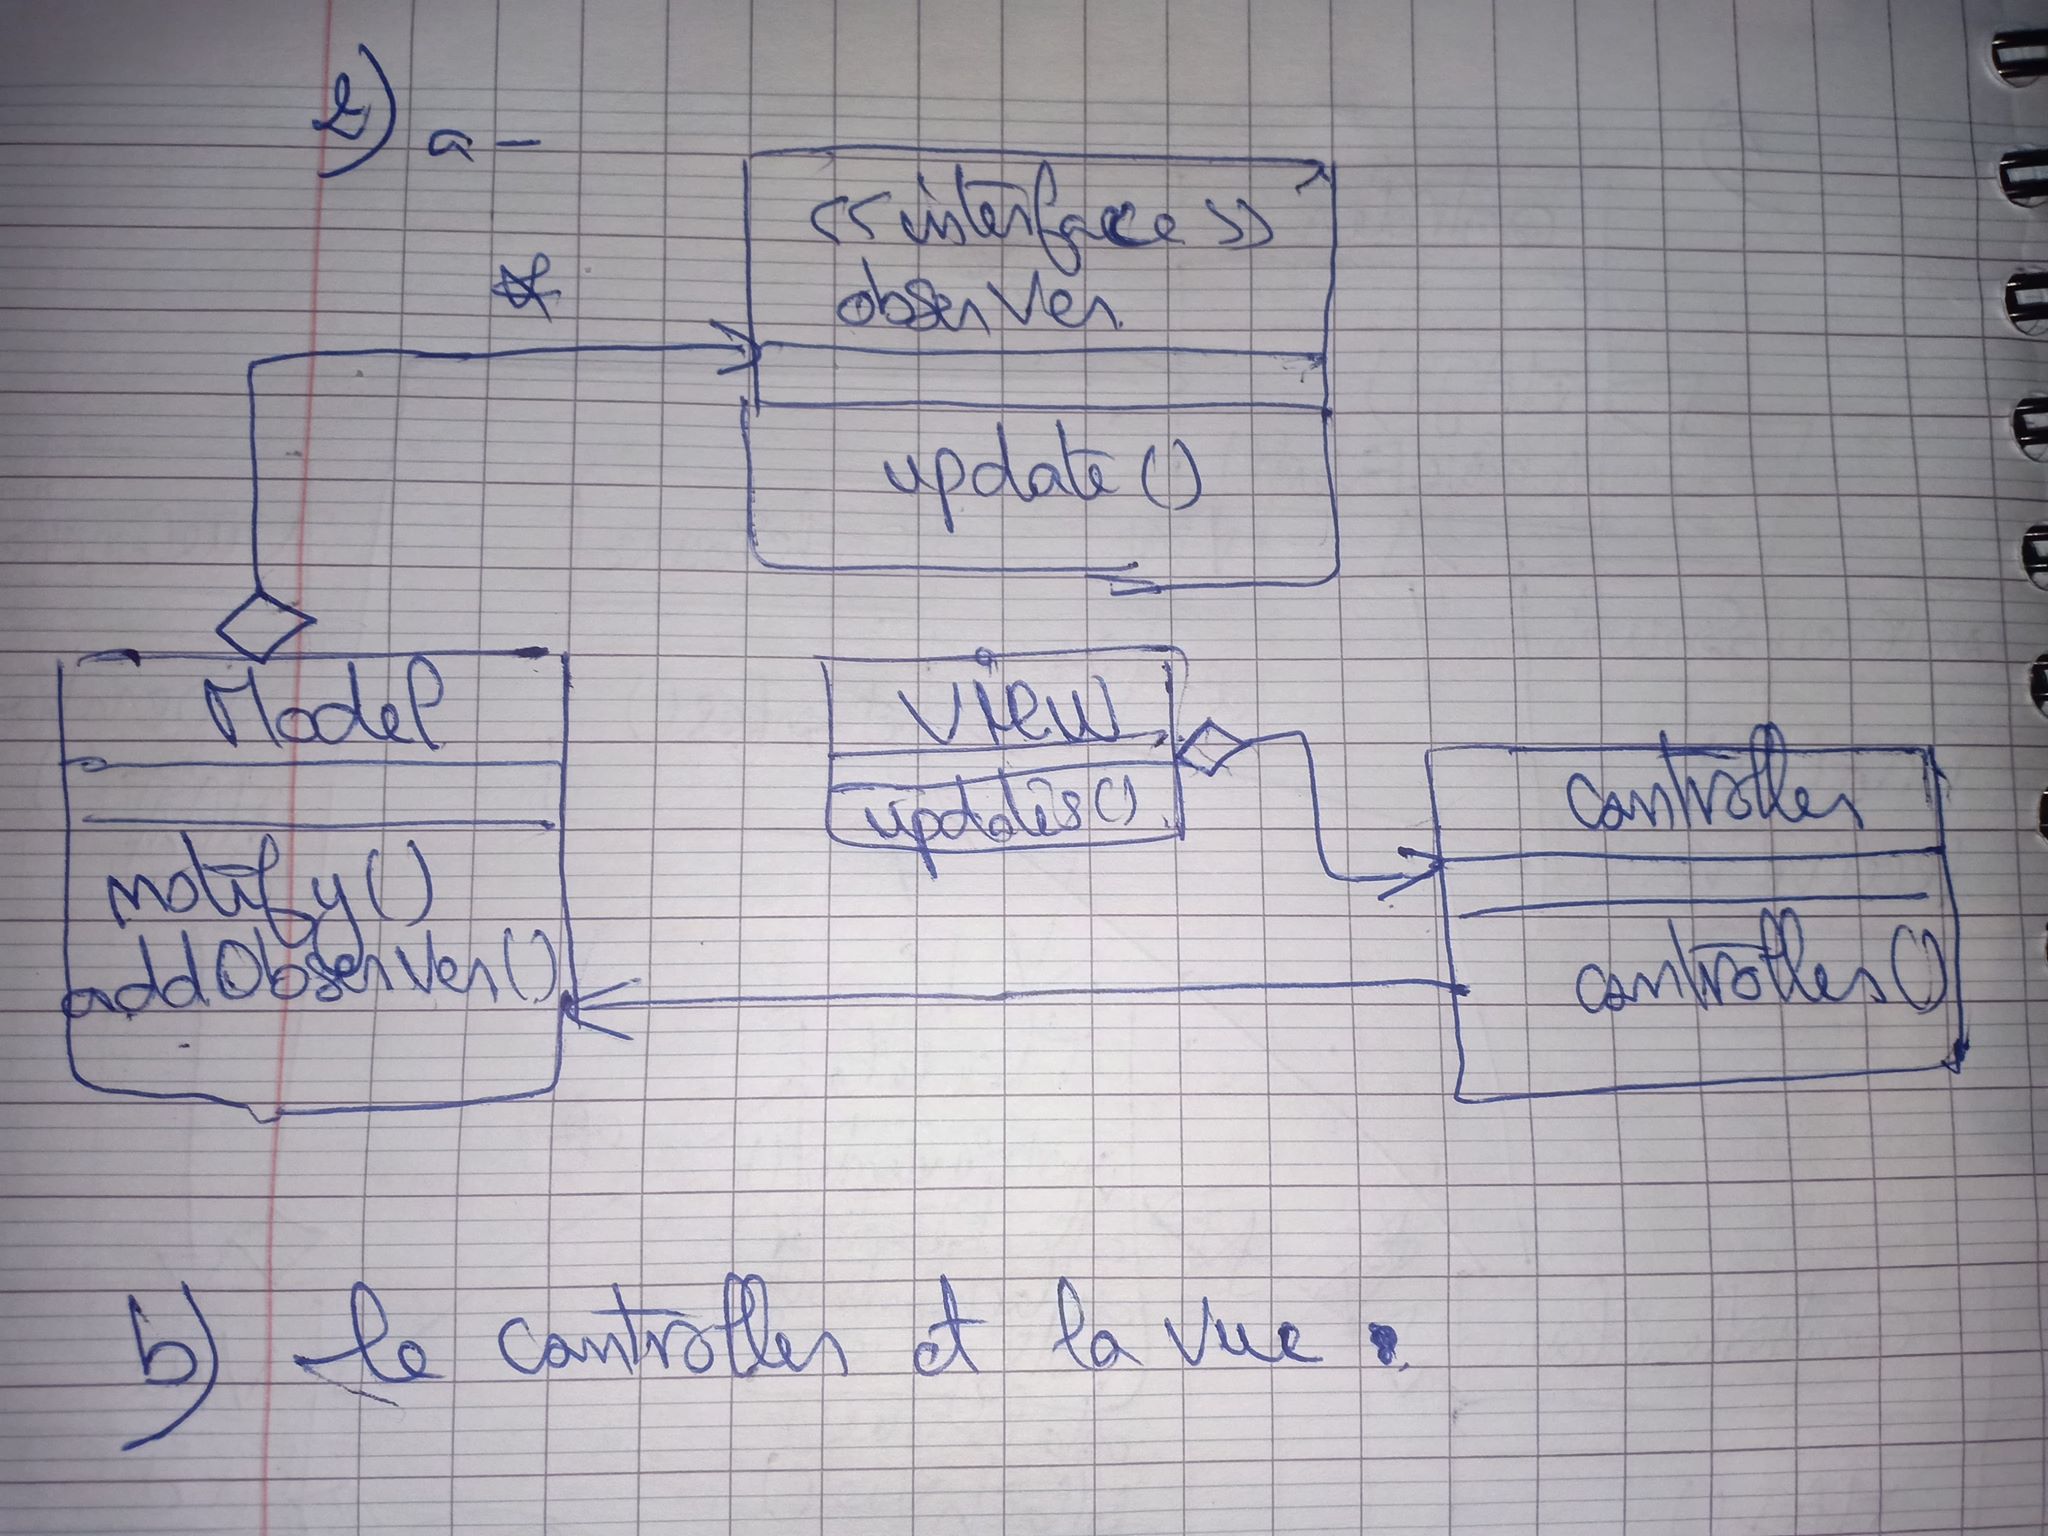 2) a -
<<interface>>
observer
*
update()
Model
notify()
addObserver()
view
updates()
controller
controller()
b) le controller et la vue.